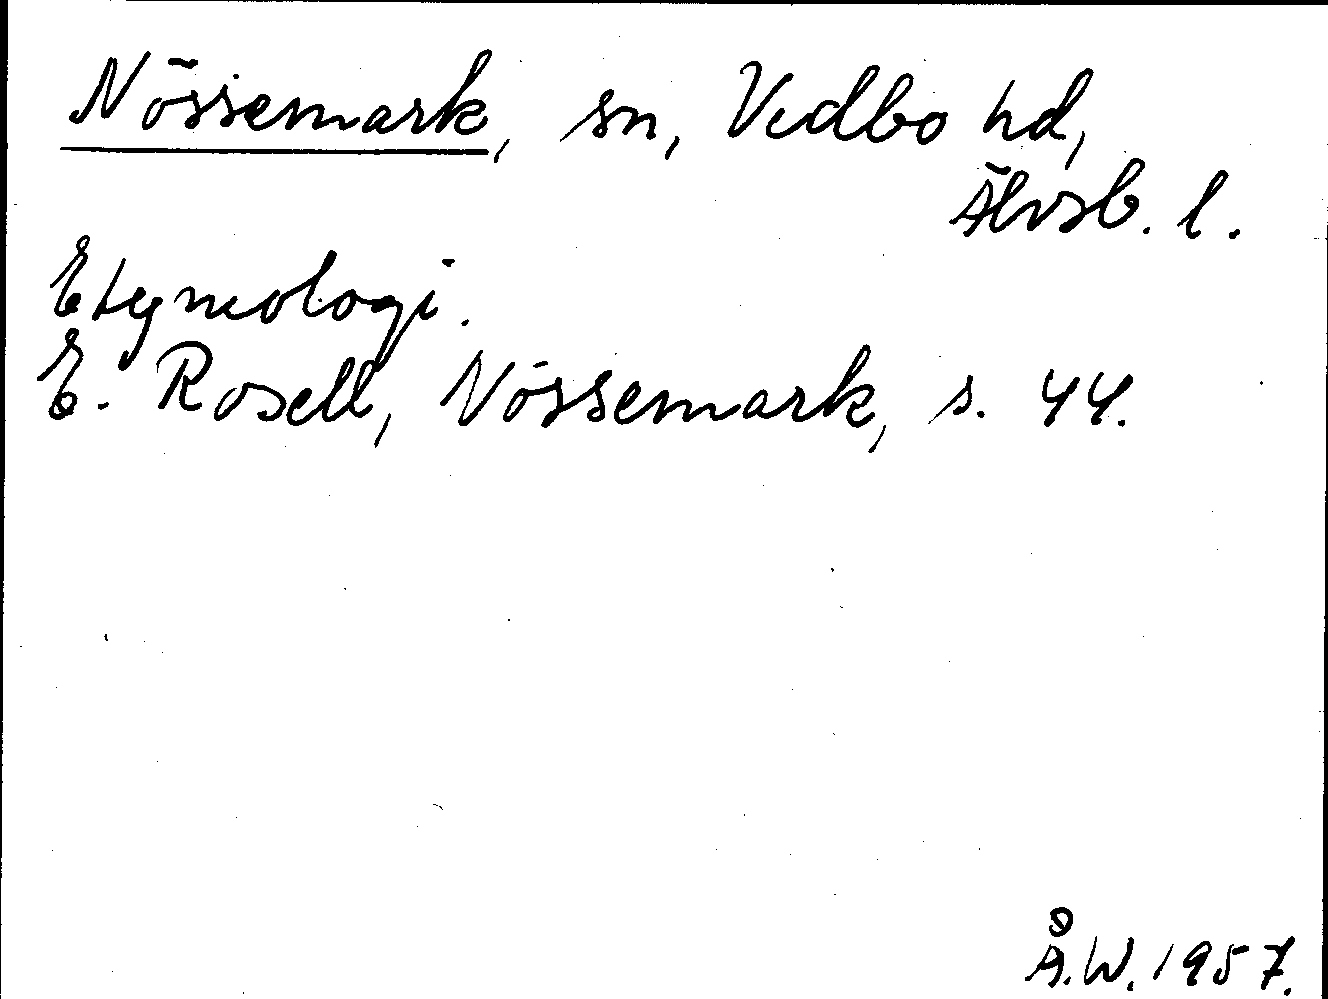 Nössemark, sn, Vedbo hd,
Älvsb. l.
Etymologi.
E. Rosell, Nössemark, s. 44.
Å.W. 1957.